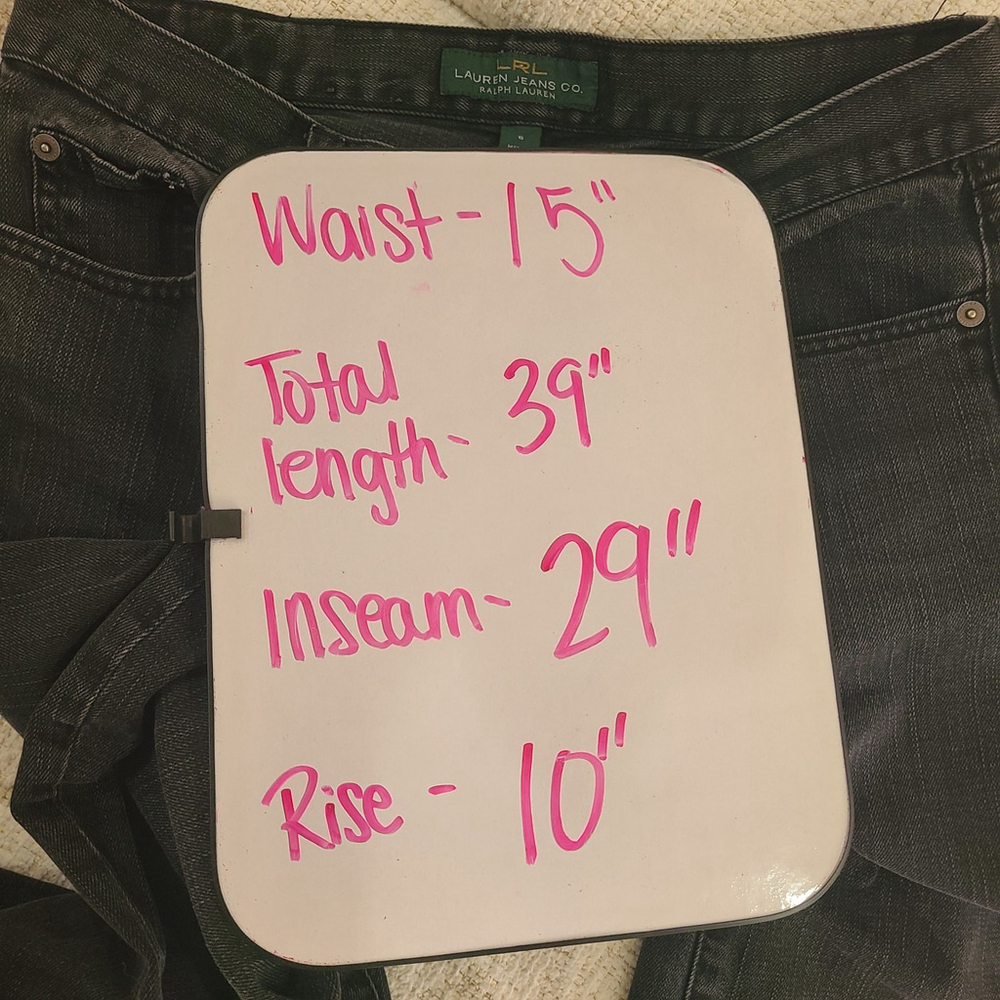 LRL
LAUREN JEANS CO.
RALPH LAUREN
6
Waist - 15"
Total
length - 39"
Inseam - 29"
Rise - 10"